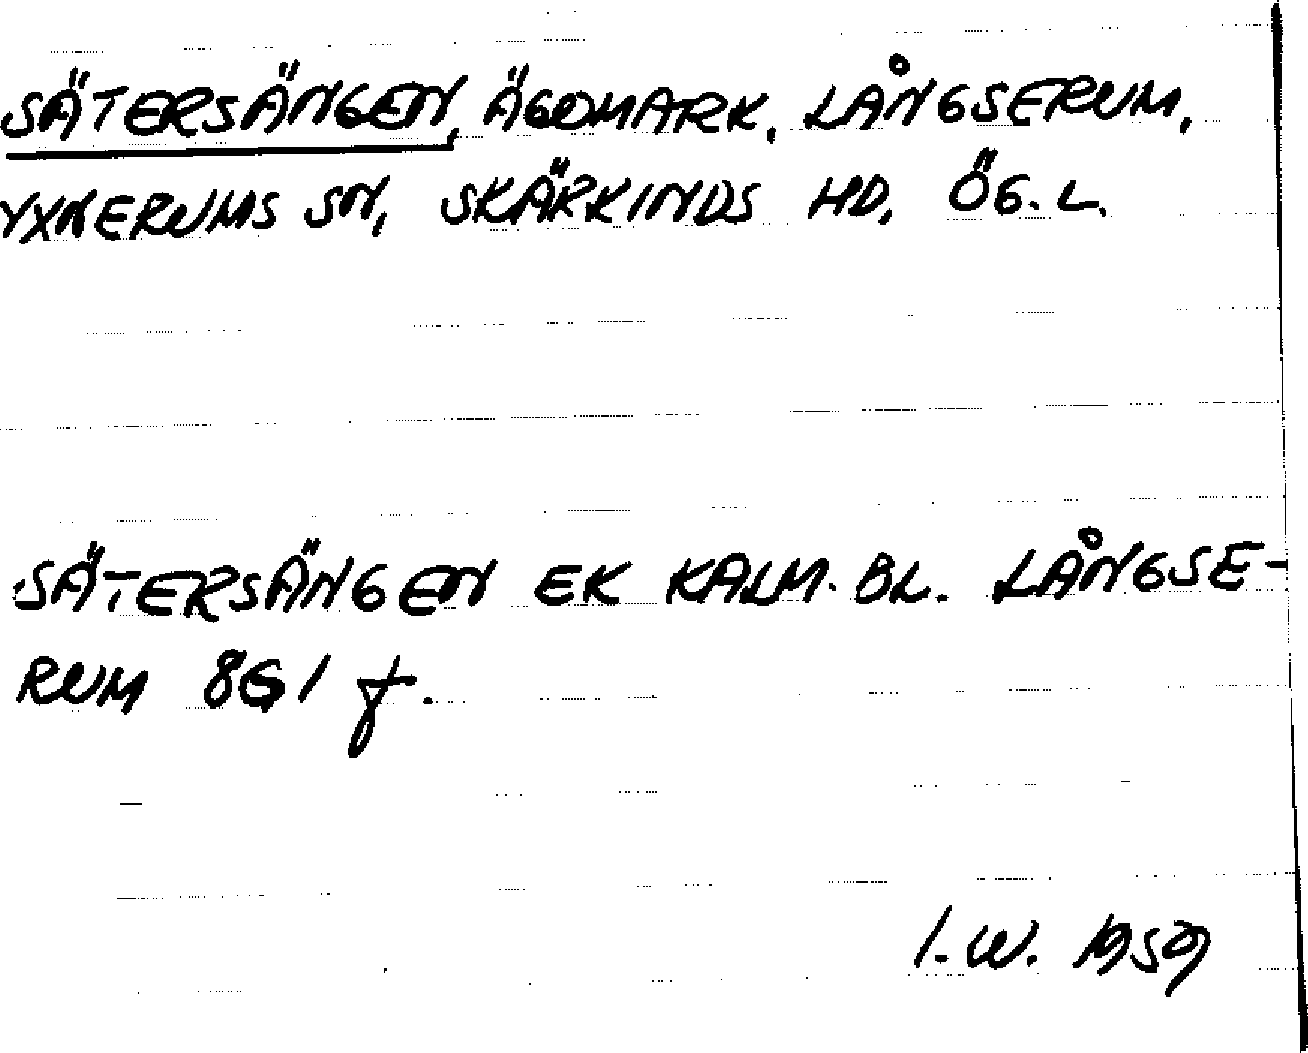 SÄTERSÄNGEN, ÄGOMARK, LÅNGSERUM,
YXNERUMS SN, SKÄRKINDS HD, ÖG. L.
SÄTERSÄNGEN EK KALM. BL. LÅNGSE-
RUM 8G1 f.
I. W. 1959